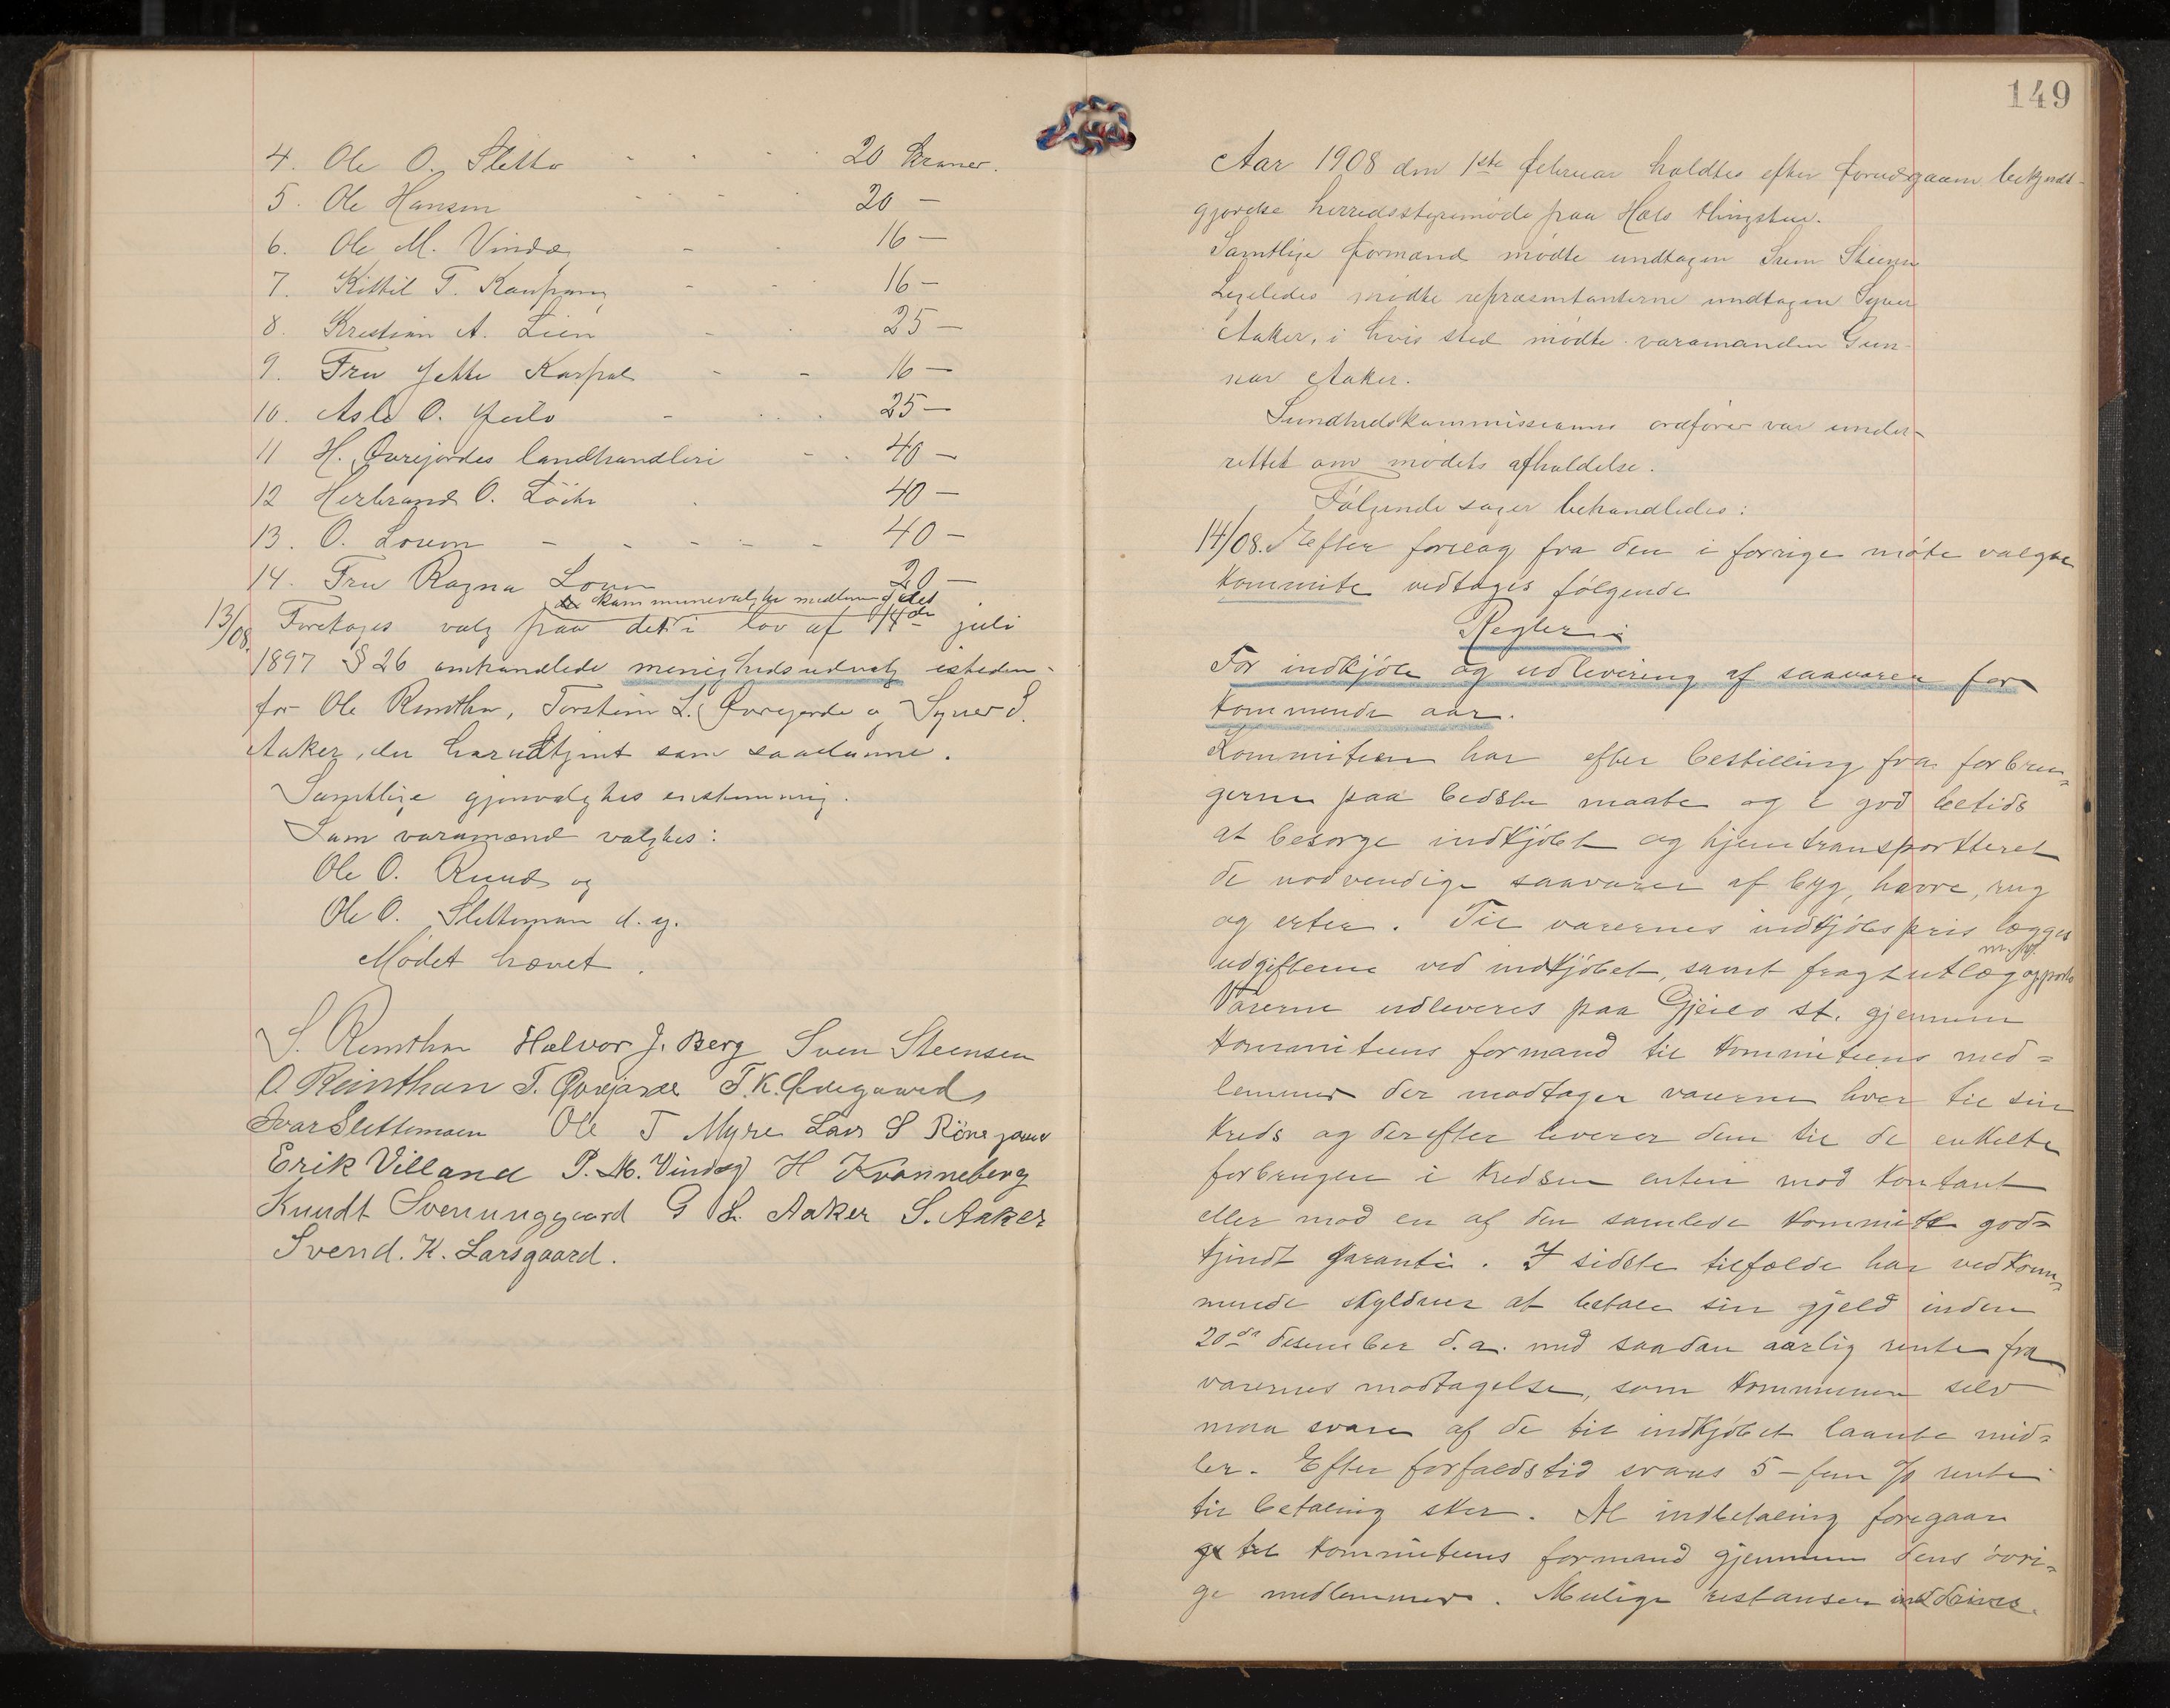 4. Ole O. Sletto - - - 20 Kroner.
5. Ole Hansen - - - 20 —
6. Ole M. Vindeg - - 16 —
7. Kittil T. Kaupang - - 16 —
8. Kristian A. Lien - - 25 —
9. Fru Jette Karpal - - 16 —
10. Asle O. Geilo - - - 25 —
11 H. Øvrejordes landhandleri - - 40 —
12 Herbrand O. Löchr - 40 —
13. O. Loum - - - - - 40 —
14. Fru Ragna Loum 20 —
kommunevalgte medlemer af det
13/08. Foretoges valg paa det i lov af 14de juli
1897 § 26 omhandlede menighedsudvalg isteden-
for Ole Reinthon, Torstein L. Øvrejorde og Syver S.
Aaker, der har udtjent som saadanne.
Samtlige gjenvalgtes enstemmig.
Som varamænd valgtes:
Ole O. Ruud og
Ole O. Slettemoen d. y.
Mødet hævet.
S. Reinthon Halvor J. Berg Sven Steensen
O Reinthon T. Øvrejorde T. K. Ødegaard
Ivar Slettemoen Ole T Myre Lars S Rönegaard
Erik Villand P. M. Vindeg H Kvanneberg
Knudt Svenunggaard G S. Aaker S. Aaker
Svend. K. Larsgaard.
149
Aar 1908 den 1ste februar holdtes efter forudgaaen bekjendt-
gjørelse herredsstyremøde paa Hols thingstue.
Samtlige formænd mødte undtagen Sven Steensen
Ligeledes mødte repræsentanterne undtagen Syver
Aaker, i hvis sted mødte varamanden Gun-
nar Aaker.
Sundhedskommissionens ordfører var under-
rettet om mødets afholdelse.
Følgende sager behandledes:
14/08. Efter forslag fra den i forrige møte valgte
kommite vedtoges følgende
Regler:
For indkjøb og udlevering af saavarer for
kommende aar.
Kommiteen har efter bestilling fra forbru-
gerne paa bedste maate og i god betids
at besorge indkjøbt og hjemtransportteret
de nødvendige saavarer af byg, havre, rug
og erter. Til varernes indkjøbspris lægges
udgifterne ved indkjøbet, samt fragtutlæg
Varerne udleveres paa Gjeilo st. gjennem
kommiteens formand til kommiteens med=
lemmer der modtager varerne hver til sin
kreds og derefter leverer dem til de enkelte
forbrugere i kredsen enten mod kontant
eller mod en af den samlede kommite god=
kjendt garanti. I sidste tilfælde har vedkom=
mende skyldner at betale sin gjeld inden
20de desember d. a. med saadan aarlig rente fra
varernes modtagelse, som kommunen selv
maa svare af de til indkjøbet laante mid=
ler. Efter forfaldstid svares 5 – fem % rente
til betaling sker. Al indbetaling foregaar
til kommiteens formand gjennem dens øvri=
ge medlemmer. Mulige restanser inddrives